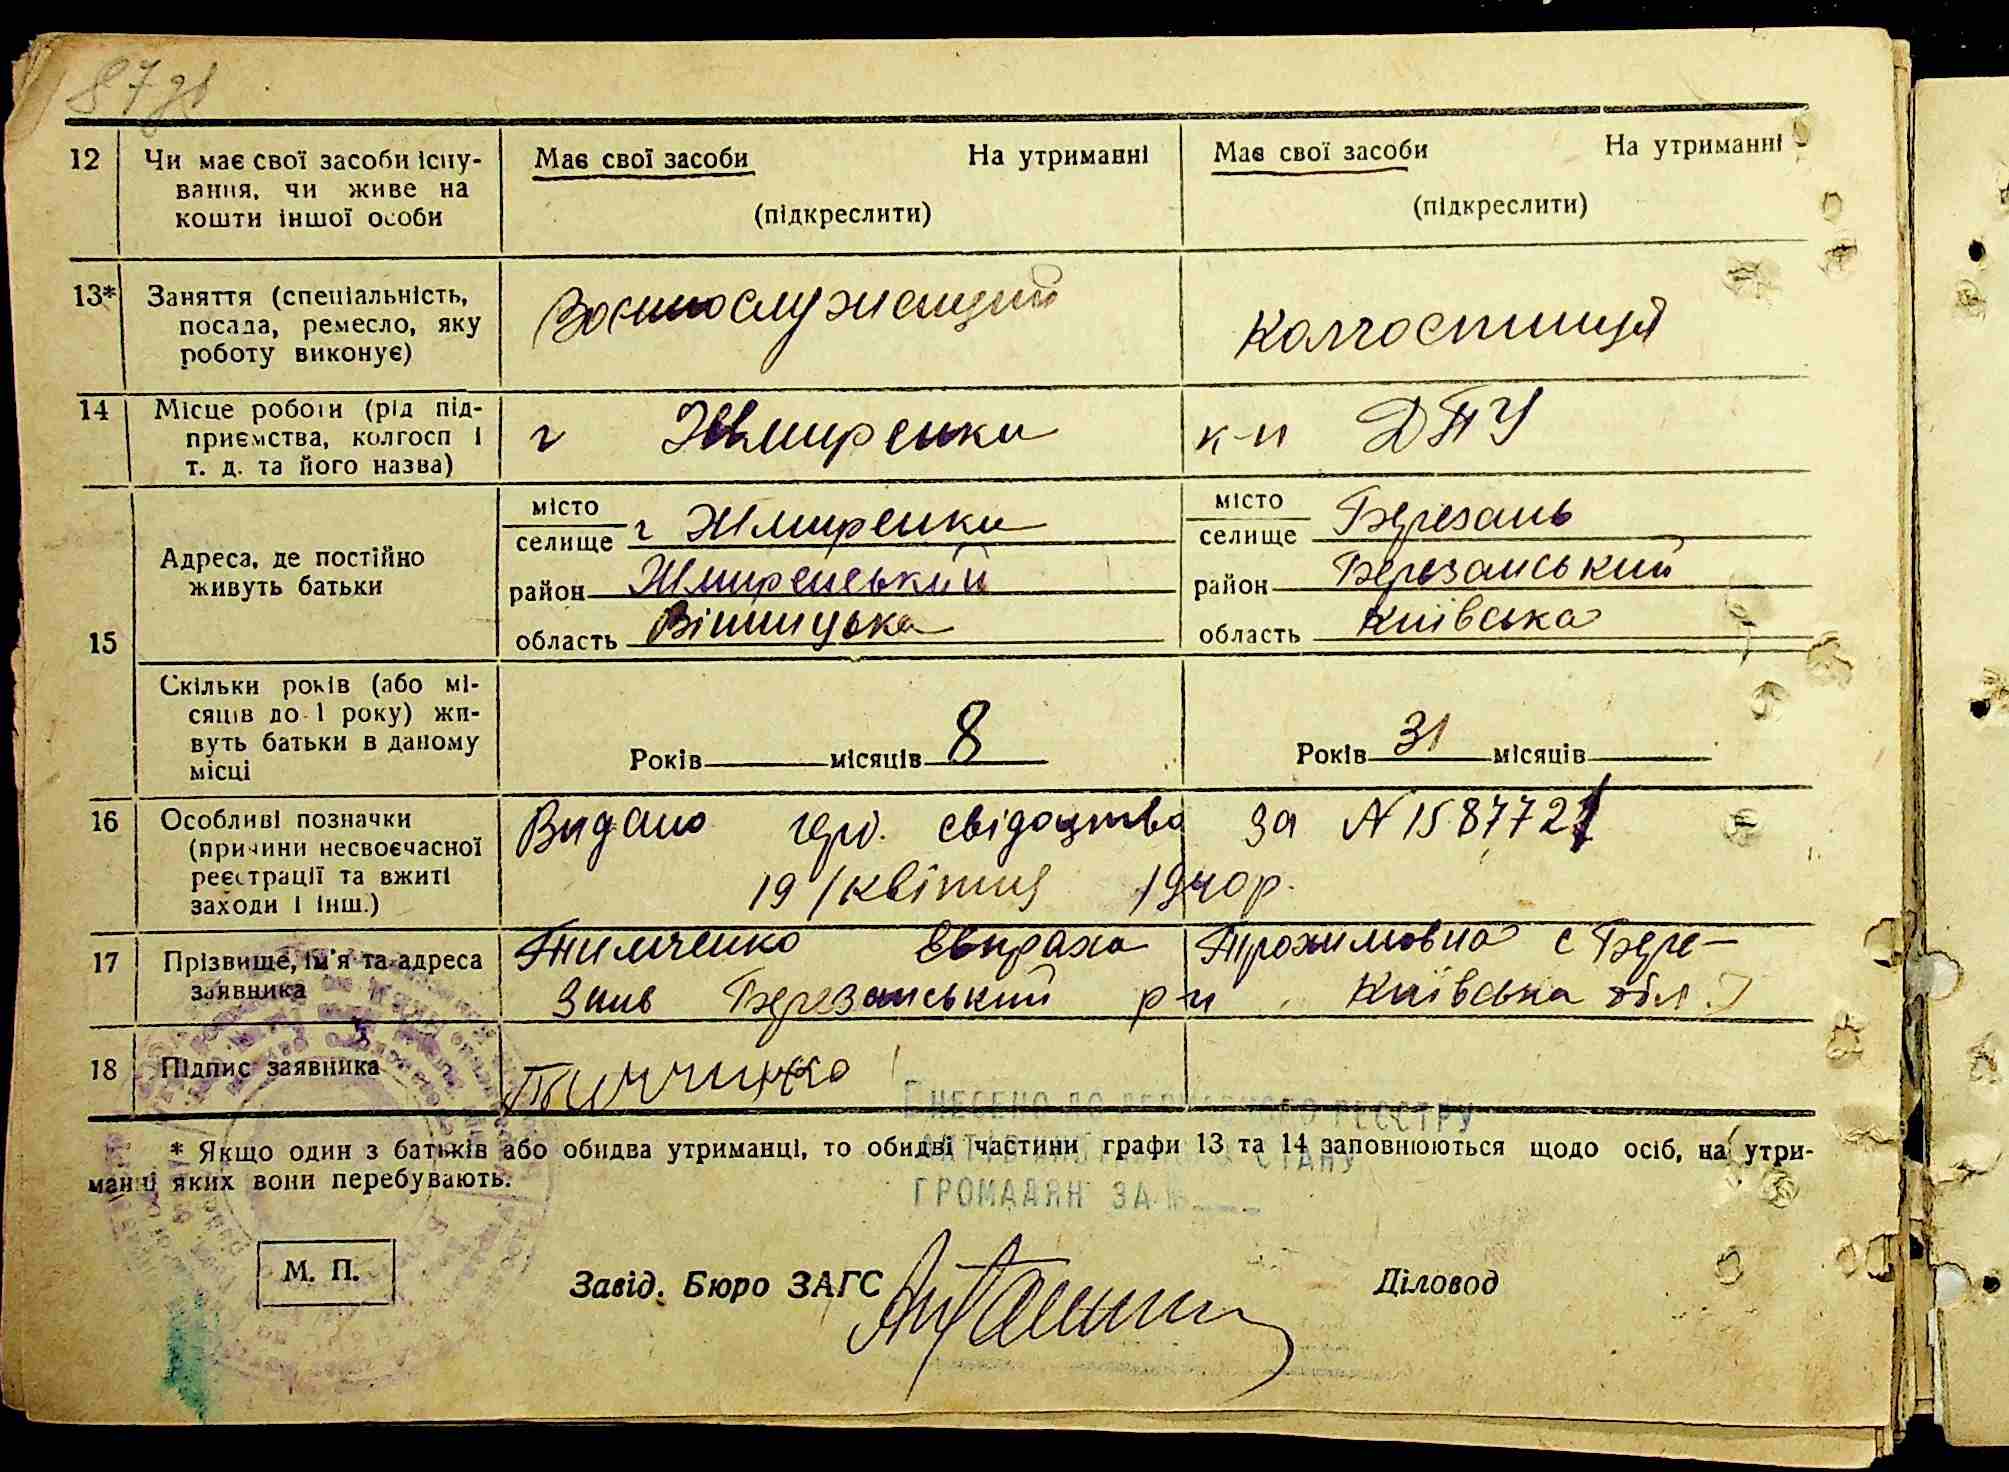 87зв
12 Чи має свої засоби існу-
вання, чи живе на
кошти іншої особи
Має свої засоби На утриманні
(підкреслити)
Має свої засоби На утриманні
(підкреслити)
13* Заняття (спеціальність,
посада, ремесло, яку
роботу виконує)
Воєннослужащий
Колгоспниця
14 Місце роботи (рід під-
приємства, колгосп і
т. д. та його назва)
г Жмиренки
к-п ДПУ
15 Адреса, де постійно
живуть батьки
місто
селище г Жмиренки
район Жмиренський
область Вінницька
місто
селище Березань
район Березанський
область Київська
Скільки років (або мі-
сяців до 1 року) жи-
вуть батьки в даному
місці
Років місяців 8
Років 31 місяців
16 Особливі позначки
(причини несвоєчасної
реєстрації та вжиті
заходи і інш.)
Видано свідоцтво за N 1587721
19/квітня 1940р.
17 Прізвище, ім'я та адреса
заявника
Тимченко Трохимовна с Бере-
Березанський р-н Київська обл.
18 Підпис заявника
ВНЕСЕНО ДО ДЕРЖАВНОГО РЕЄСТРУ
АКТІВ СТАНУ
ГРОМАДЯН ЗА №
* Якщо один з батьків або обидва утриманці, то обидві частини графи 13 та 14 заповнюються щодо осіб, на утри-
манні яких вони перебувають.
М. П.
Завід. Бюро ЗАГС
Діловод